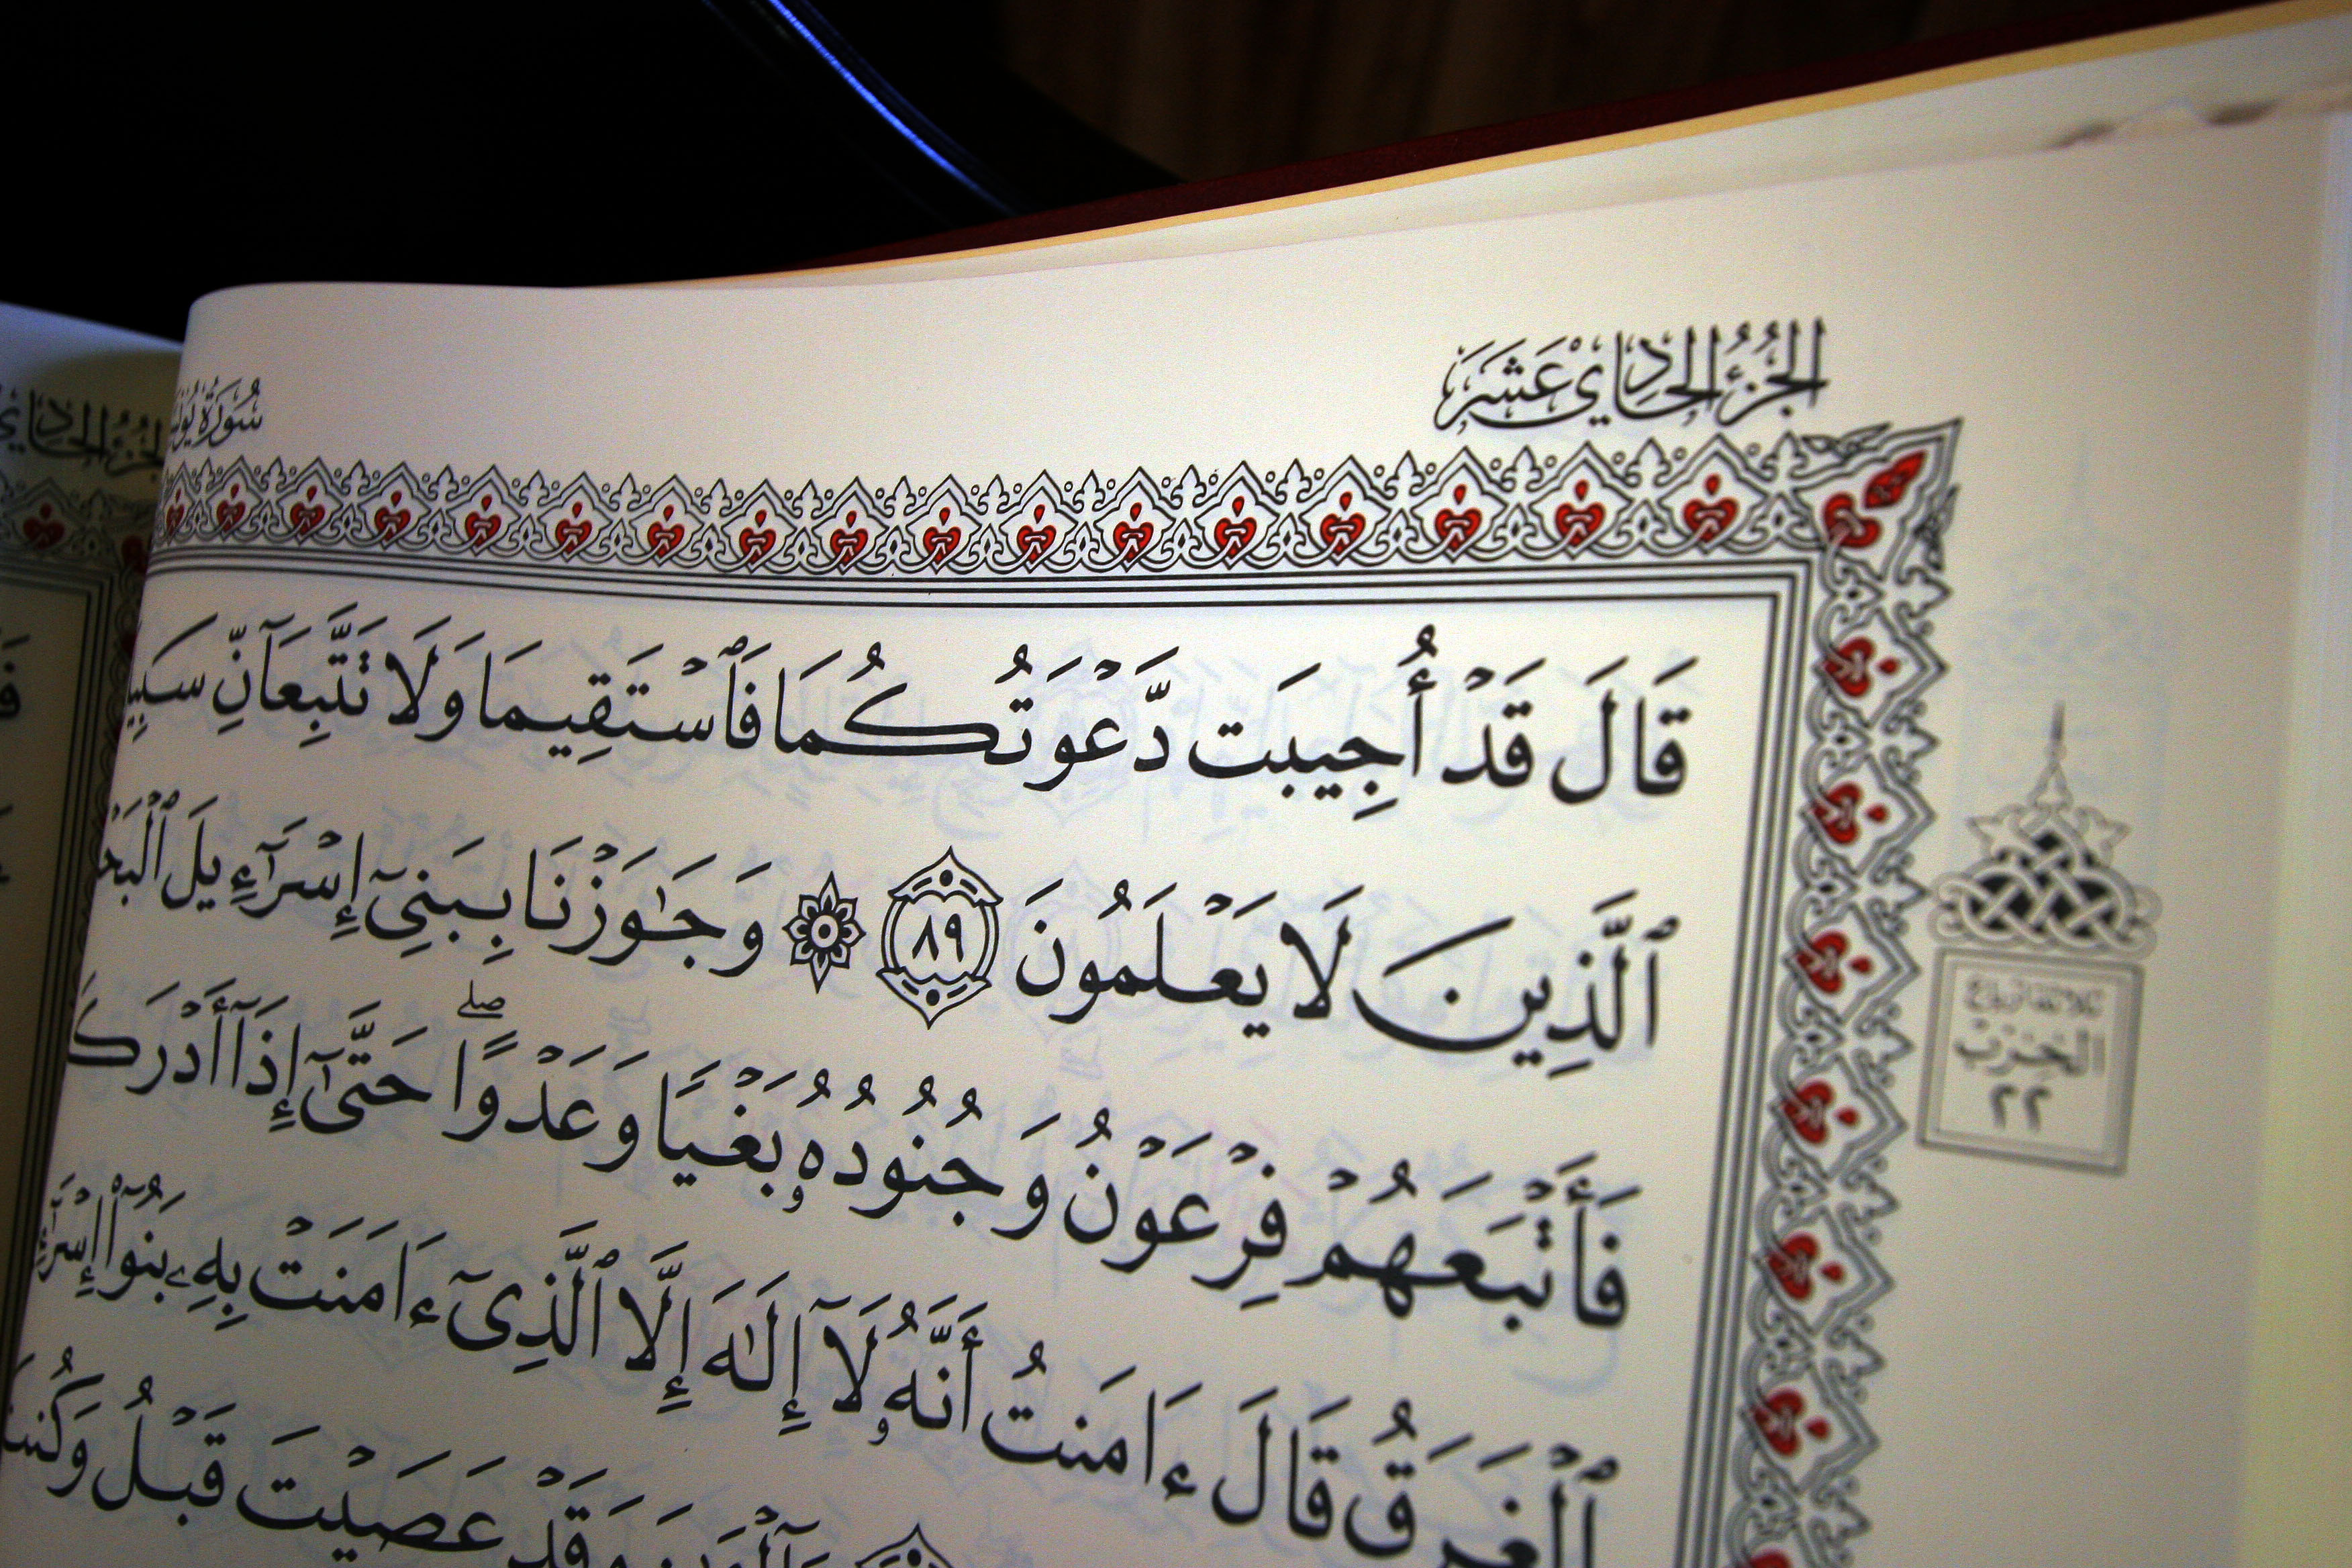 الجُزْءُ الحَادِي عَشَرَ
سُورَةُ
قَالَ قَدْ أُجِيبَت دَّعْوَتُكُمَا فَٱسْتَقِيمَا وَلَا تَتَّبِعَآنِّ
ٱلَّذِينَ لَا يَعْلَمُونَ ٨٩ ۞ وَجَٰوَزْنَا بِبَنِىٓ إِسْرَٰٓءِيلَ
فَأَتْبَعَهُمْ فِرْعَوْنُ وَجُنُودُهُۥ بَغْيًا وَعَدْوًا ۖ حَتَّىٰٓ إِذَآ
ٱلْغَرَقُ قَالَ ءَامَنتُ أَنَّهُۥ لَآ إِلَٰهَ إِلَّا ٱلَّذِىٓ ءَامَنَتْ بِهِۦ بَنُوٓا۟
وَقَدْ عَصَيْتَ قَبْلُ
ثلاثة أرباع
الحزب
٢٢